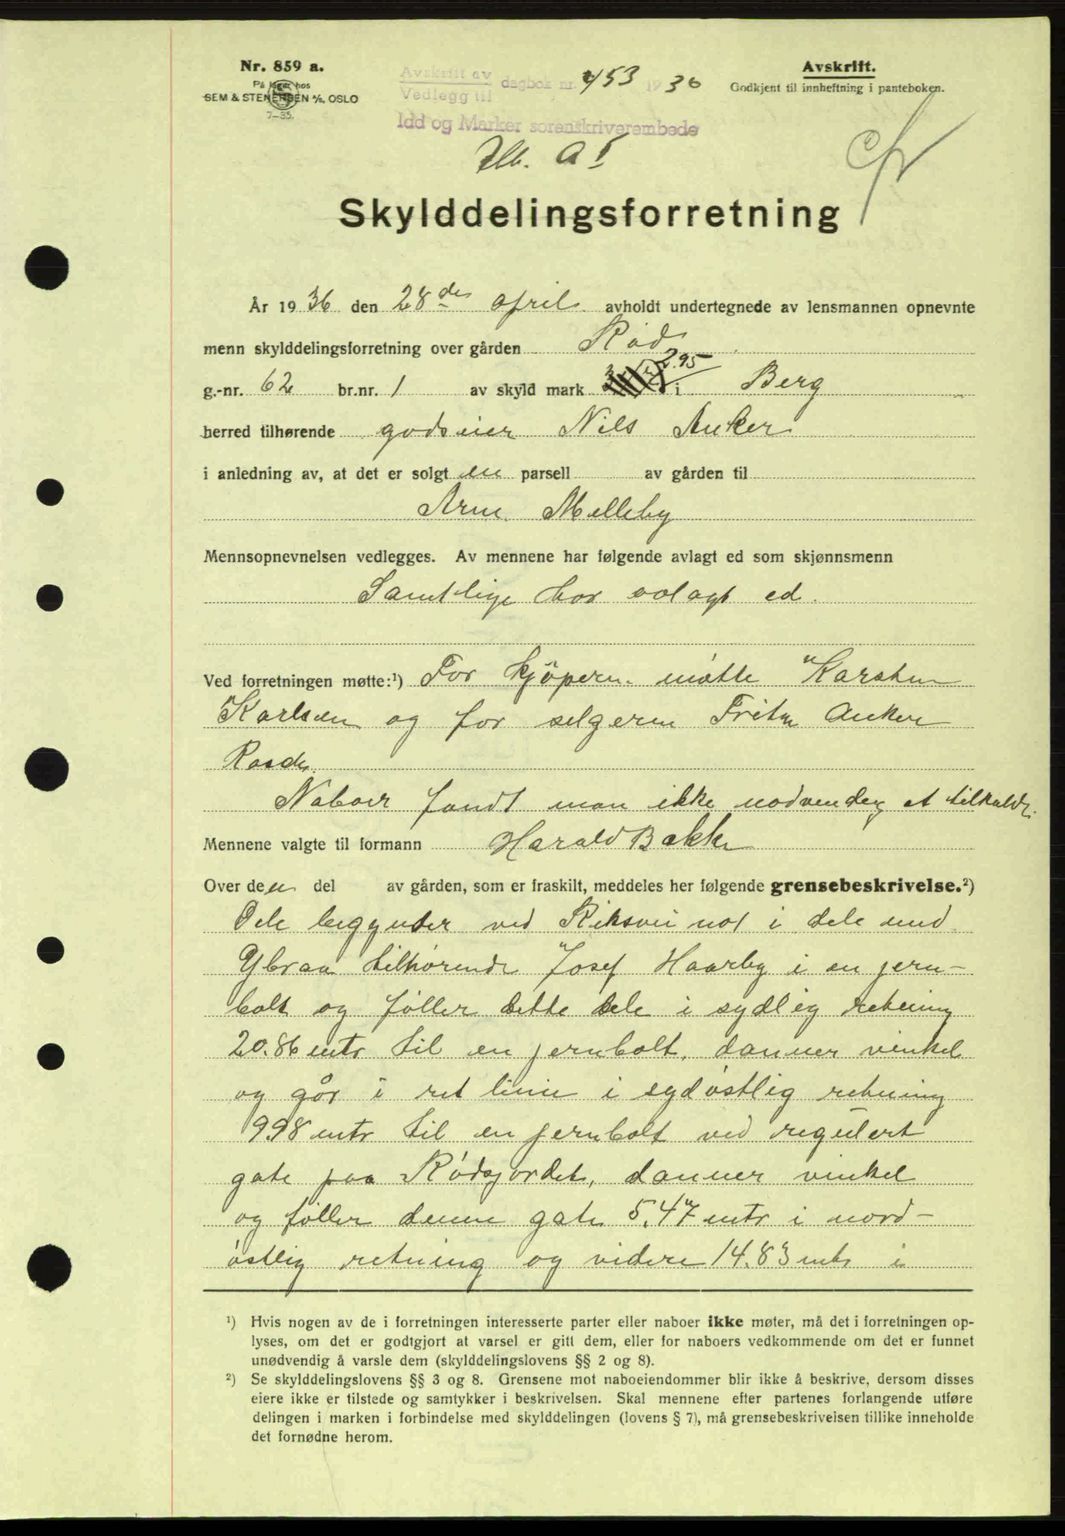 Nr. 859 a.
På lager hos
SEM & STENERSEN A/S, OSLO
7-35.
Avskrift av
Vedlegg til dagbok nr. 453 1936
Idd og Marker sorenskriverembede
Avskrift.
Godkjent til innheftning i panteboken.
Skylddelingsforretning
År 1936 den 28de april avholdt undertegnede av lensmannen opnevnte
menn skylddelingsforretning over gården Rød
g.-nr. 62 br.nr. 1 av skyld mark 2.95 i Berg
herred tilhørende godseier Nils Anker
i anledning av, at det er solgt en parsell av gården til
Arne Melleby
Mennsopnevnelsen vedlegges. Av mennene har følgende avlagt ed som skjønnsmenn
Samtlige har avlagt ed.
Ved forretningen møtte:¹) For kjöperen møtte Karsten
Karlsen og for selgeren Anker
Naboer fandt man ikke nødvendig at tilkalde.
Mennene valgte til formann Harald Bakke
Over den del av gården, som er fraskilt, meddeles her følgende grensebeskrivelse.²)
Dele begynder ved Riksvei no1 i dele med
tilhørende Josef Haarby i en jern-
bolt og föller dette dele i sydlig retning
20.86 mtr til en jernbolt, danner vinkel
og går i ret linie i sydøstlig retning
998 mtr til en jernbolt ved regulert
gate paa Rødsjordet, danner vinkel
og föller denne gate 5.47 mtr i nord-
østlig retning og videre 14.83 mtr i
¹) Hvis nogen av de i forretningen interesserte parter eller naboer ikke møter, må det i forretningen op-
lyses, om det er godtgjort at varsel er gitt dem, eller for naboers vedkommende om det er funnet
unødvendig å varsle dem (skylddelingslovens §§ 2 og 8).
²) Se skylddelingslovens §§ 3 og 8. Grensene mot naboeiendommer blir ikke å beskrive, dersom disses
eiere ikke er tilstede og samtykker i beskrivelsen. Skal mennene efter partenes forlangende utføre
delingen i marken i forbindelse med skylddelingen (lovens § 7), må grensebeskrivelsen tillike inneholde
det fornødne herom.